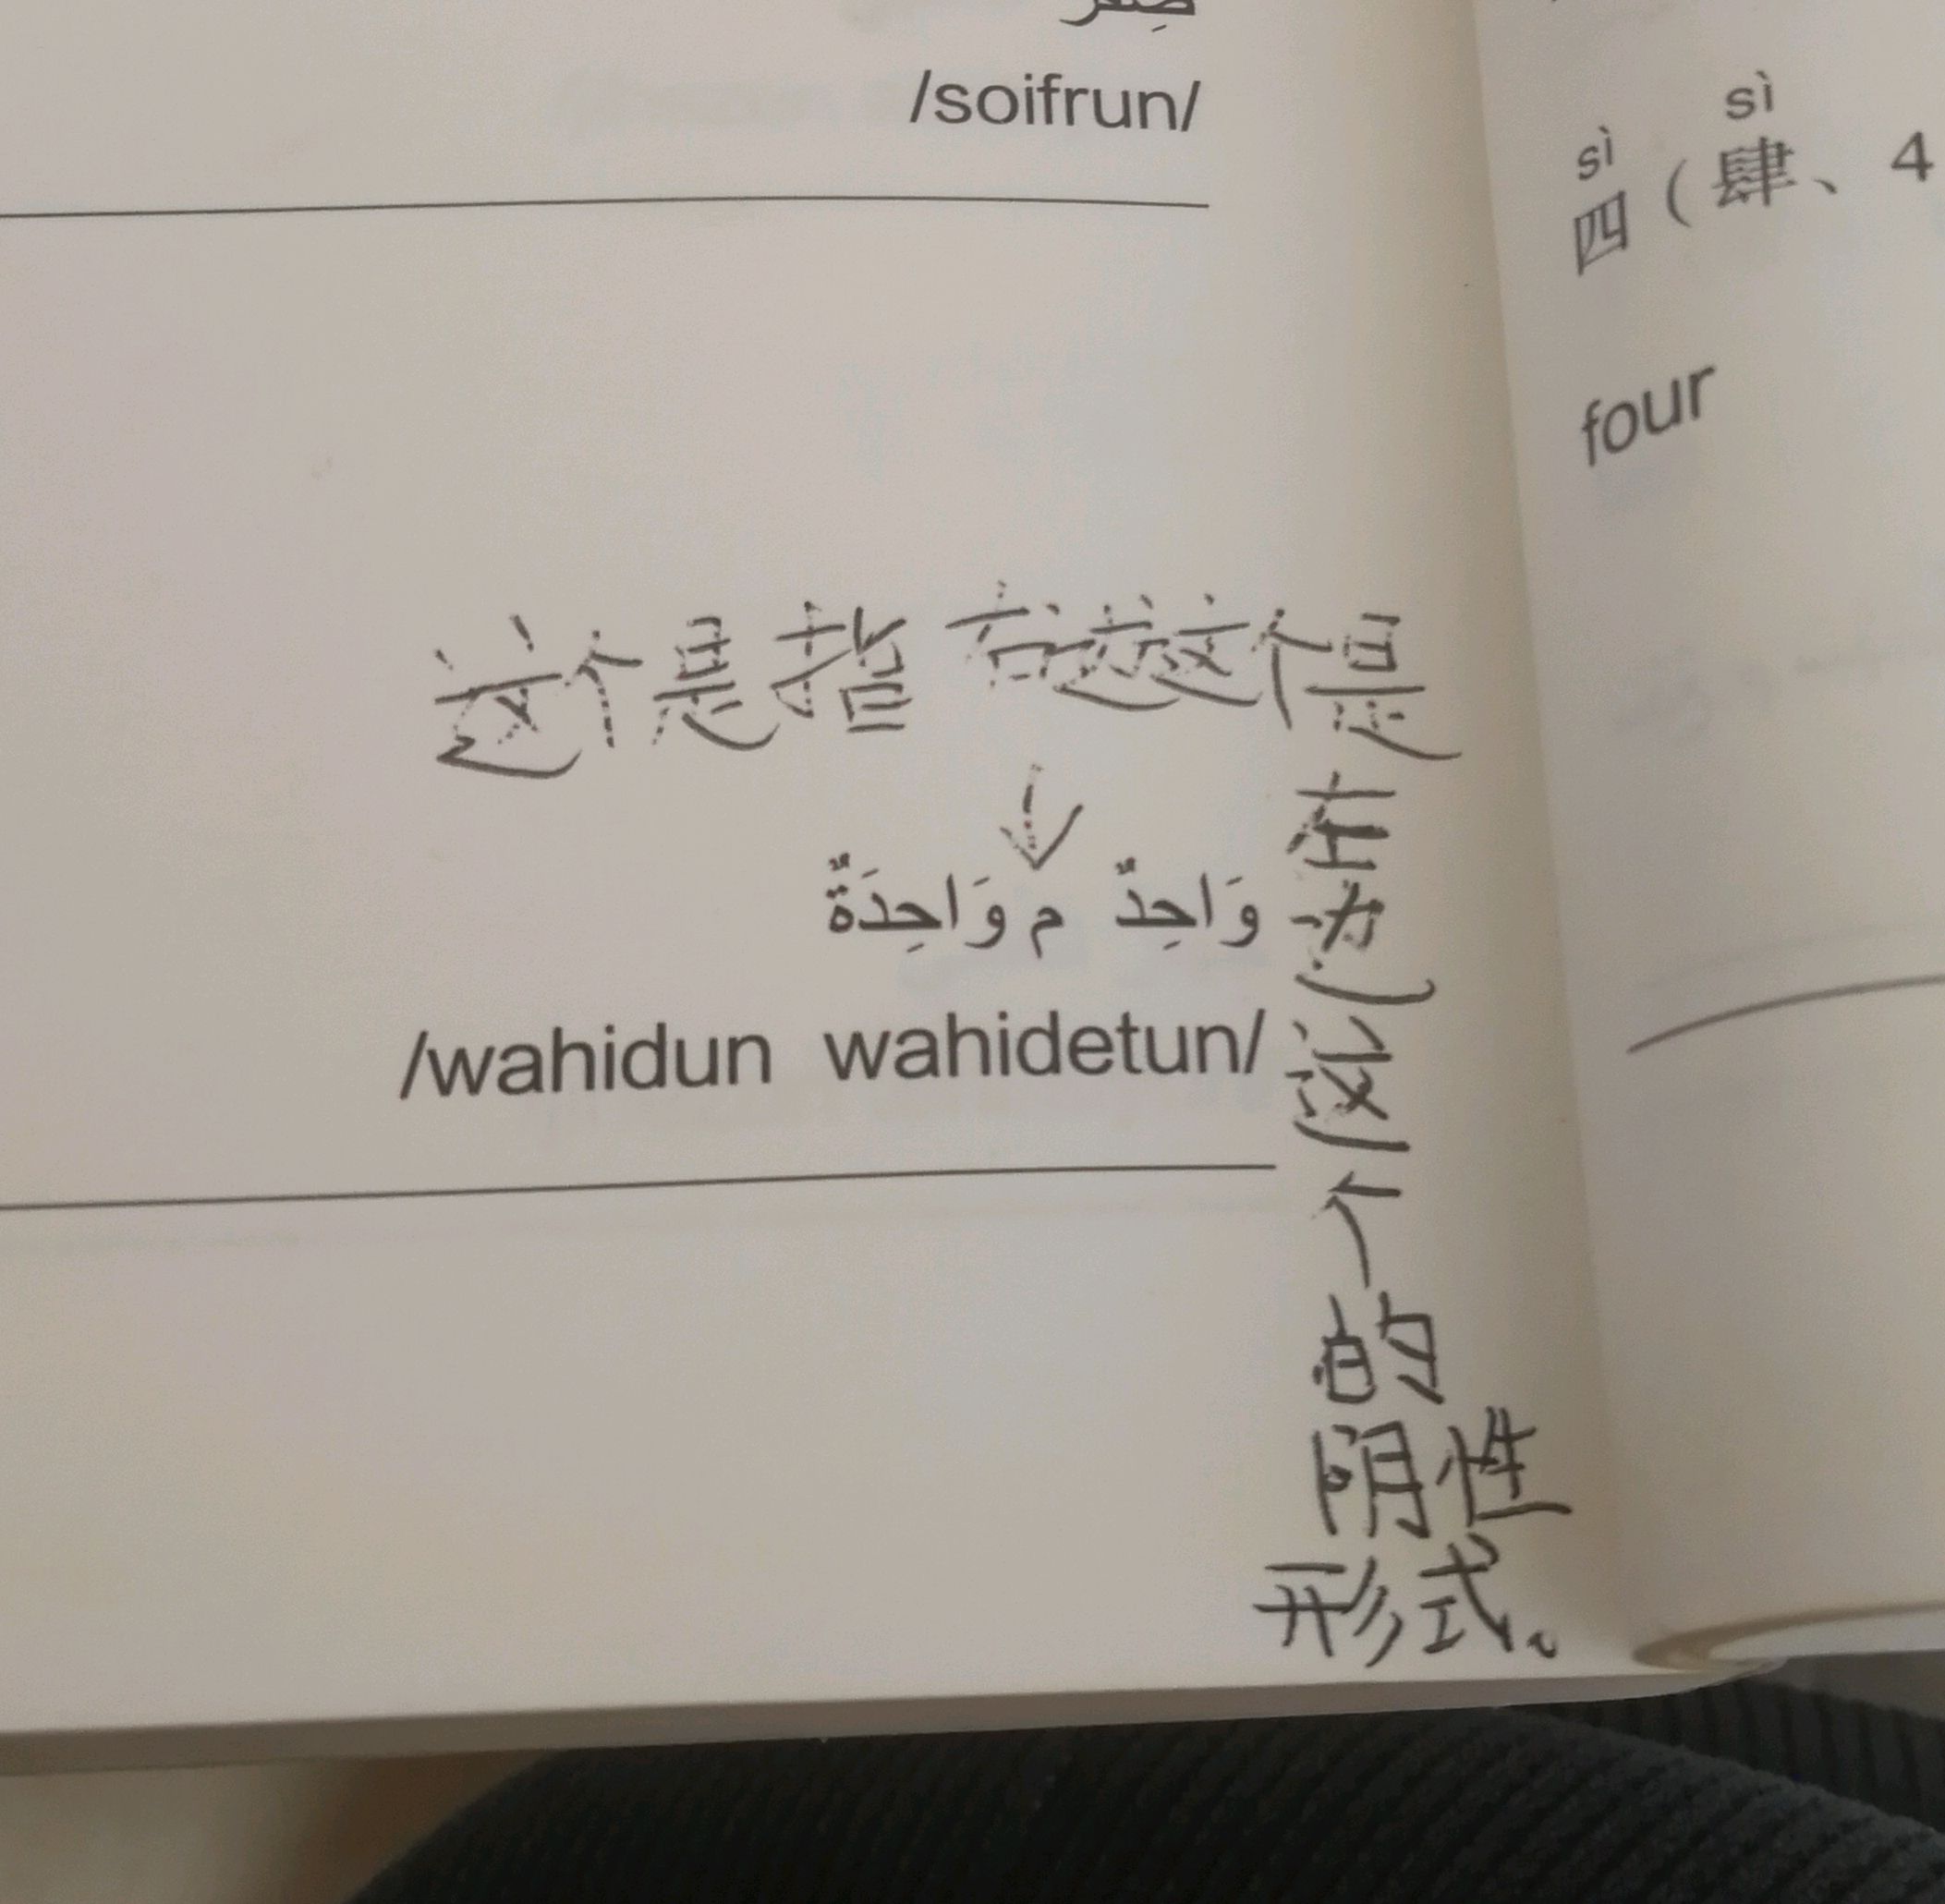 صِفْرٌ
/soifrun/
这个是指右边这个是
左边这个的阴性形式。
↓
وَاحِدٌ م وَاحِدَةٌ
/wahidun wahidetun/
sì sì
四(肆、4
four